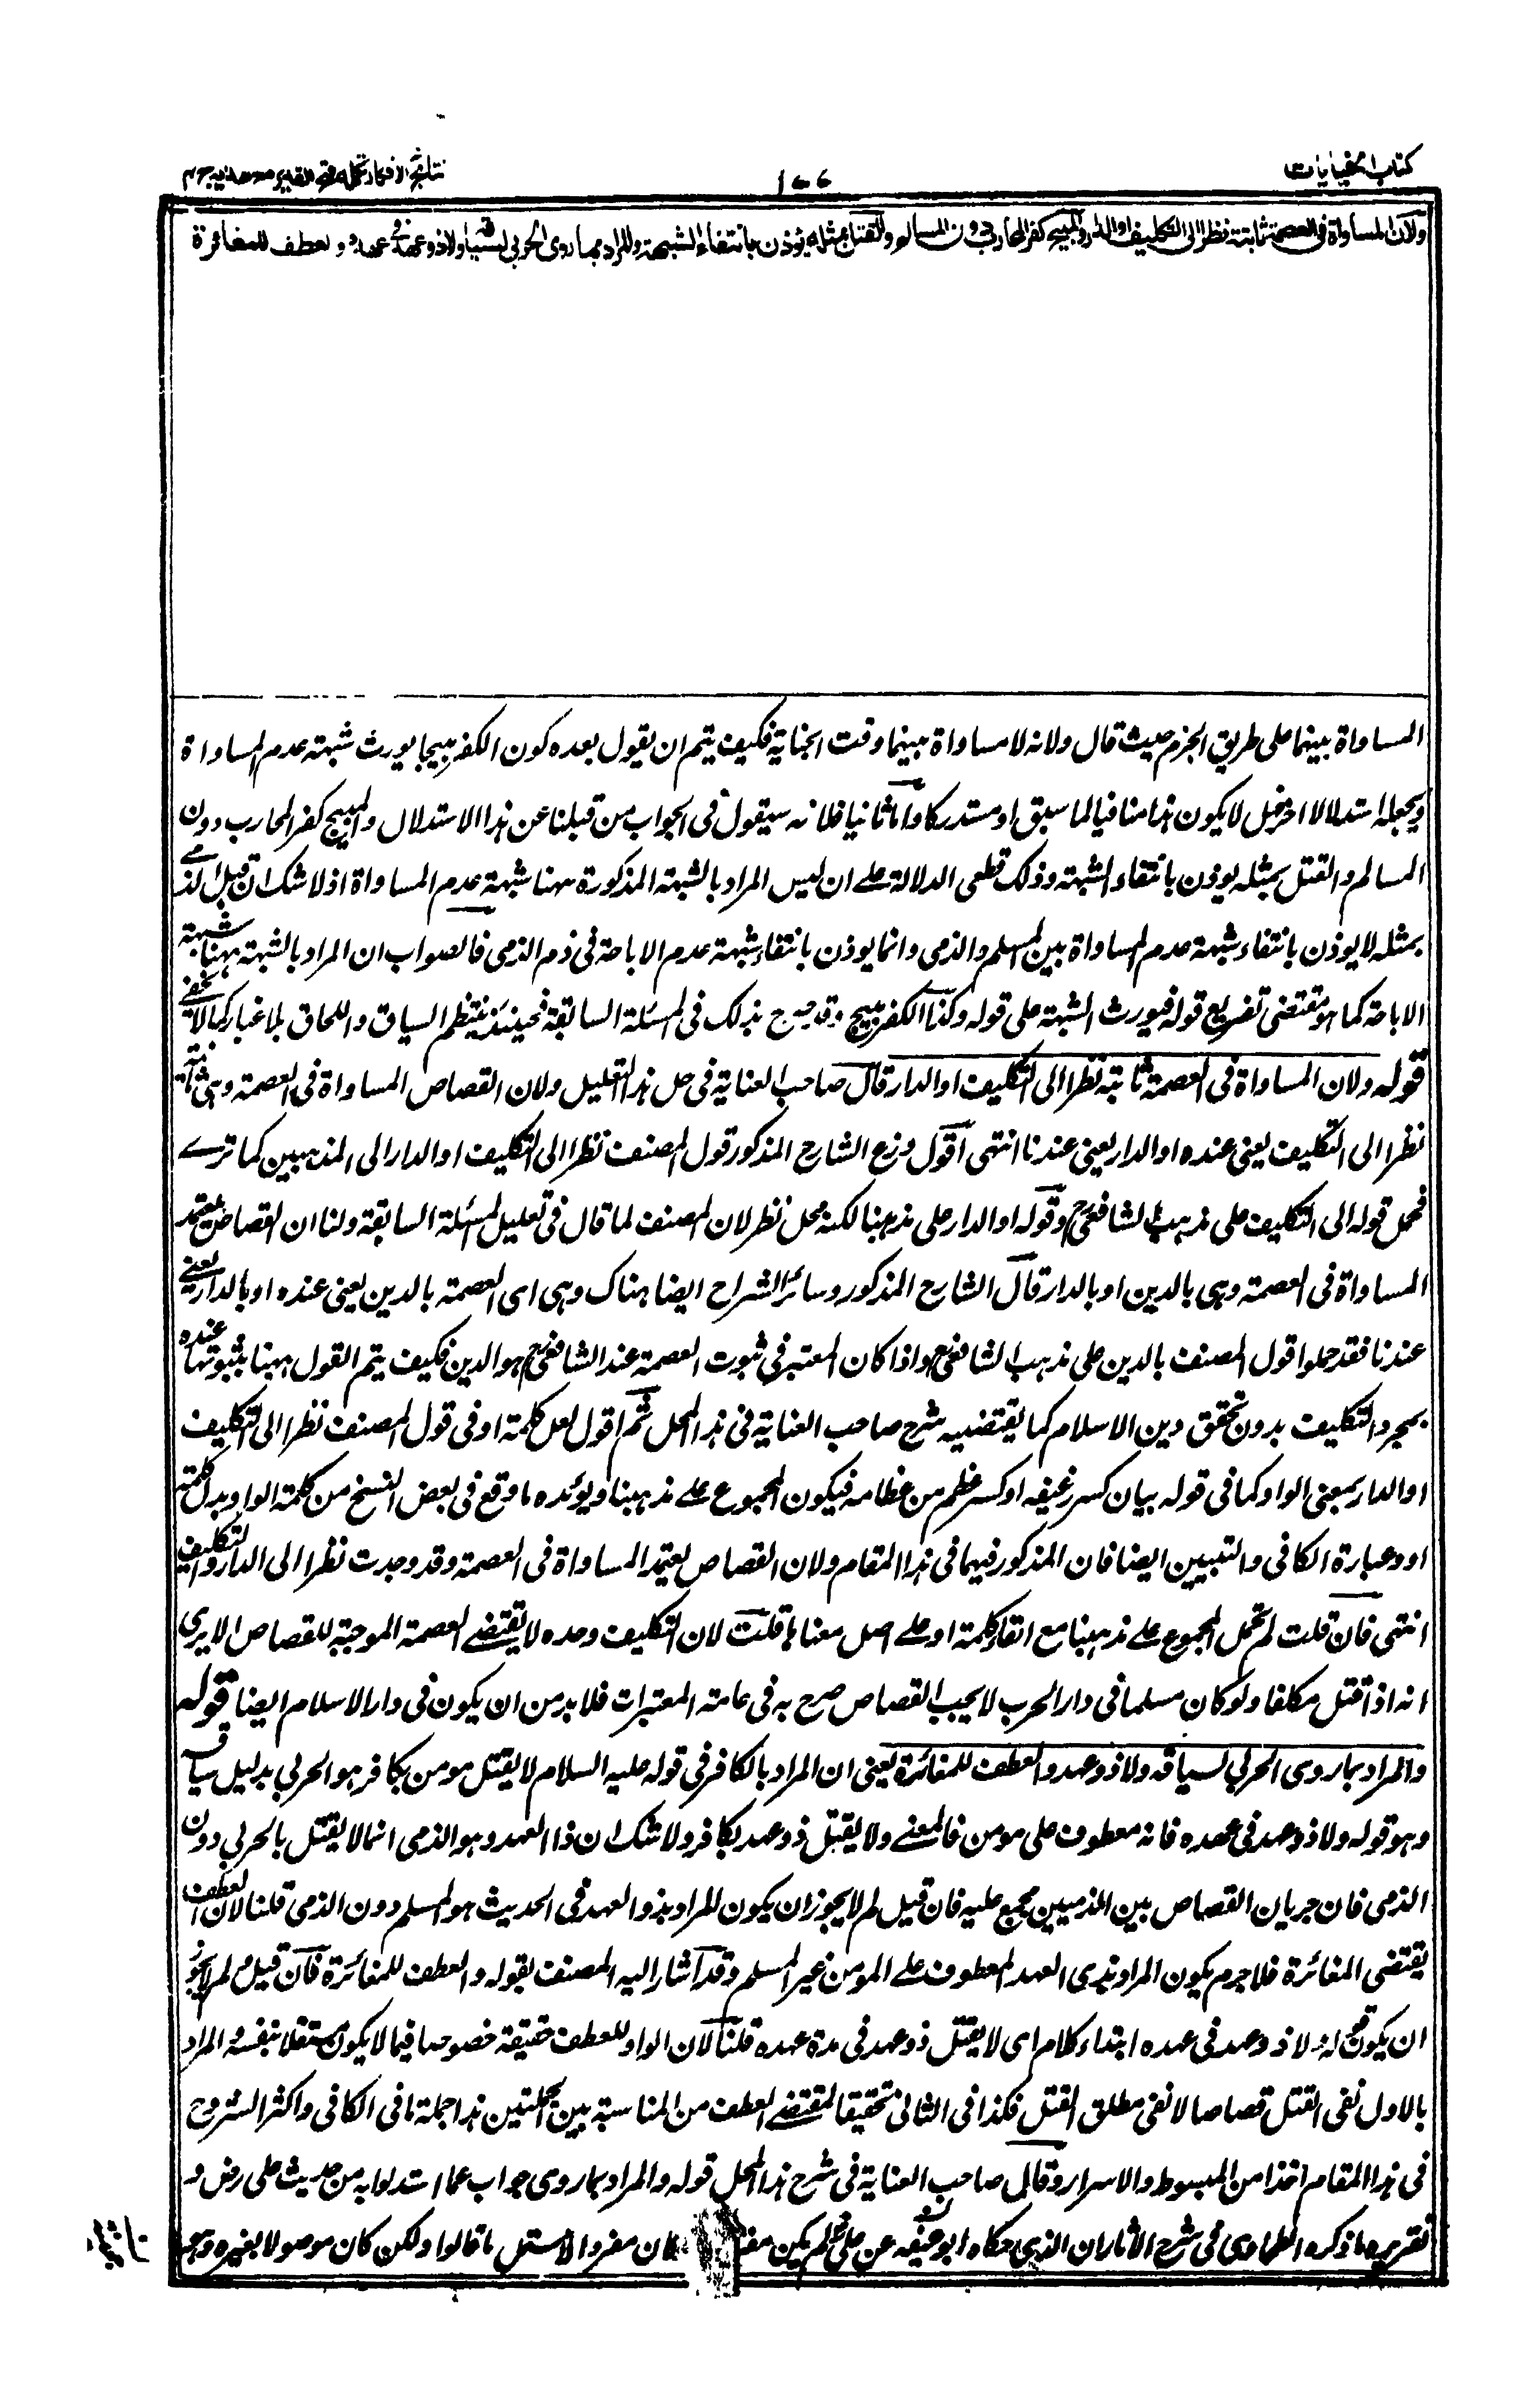 كتاب الجنايات
١٧٧
نتائج الافكار تكملة فتح القدير مع هدايه ج ٤
ولان المساواة فى العصمة ثابتة نظرا الى التكليف او الدار والمبيح كفر المحارب دون المسالم والقتل بمثله يؤذن بانتفاء الشبهة والمراد بما روى الحربي لسياقه ولا ذو عهد فى عهده والعطف للمغائرة
المساواة بينهما على طريق الجزم حيث قال ولانه لا مساواة بينهما وقت الجناية فكيف يتم ان يقول بعده كون الكفر مبيحا يورث شبهة عدم المساواة
ويجعله استدلالا اخر هل لا يكون هذا منافيا لما سبق او مستدركا واما ثانيا فلانه سيقول فى الجواب من قبلنا عن هذا الاستدلال والمبيح كفر المحارب دون
المسالم والقتل بمثله يوذن بانتفاء الشبهة وذلك قطعى الدلالة على ان ليس المراد بالشبهة المذكورة ههنا شبهة عدم المساواة اذ لا شك ان قتل الذمے
بمثله لا يوذن بانتفاء شبهة عدم المساواة بين المسلم والذمى وانما يوذن بانتفاء شبهة عدم الاباحة فى دم الذمى فالصواب ان المراد بالشبهة ههنا شبهة
الاباحة كما هو مقتضى تفريع قوله فيورث الشبهة على قوله وكذا الكفر مبيح وقد صرح بذلك فى المسئلة السابقة فحينئذ ينتظم السياق واللحاق بلا غبار كما لا يخفے
قوله ولان المساواة فى العصمة ثابتة نظرا الى التكليف او الدار قال صاحب العناية فى حل هذا التعليل ولان القصاص المساواة فى العصمة وهى ثابتة
نظرا الى التكليف يعنى عنده او الدار يعنى عندنا انتهى اقول وزع الشارح المذكور قول المصنف نظرا الى التكليف او الدار الى المذهبين كما ترے
فحمل قوله الى التكليف على مذهب الشافعى رح وقوله او الدار على مذهبنا لكنه محل نظر لان المصنف لما قال فى تعليل المسئلة السابقة ولنا ان القصاص يعتمد
المساواة فى العصمة وهى بالدين او بالدار قال الشارح المذكور وسائر الشراح ايضا هناك وهى اى العصمة بالدين يعنى عنده او بالدار يعنے
عندنا فقد حملوا قول المصنف بالدين على مذهب الشافعى رح واذا كان المعتبر فى ثبوت العصمة عند الشافعى رح هو الدين فكيف يتم القول ههنا بثبوتها عنده
بمجرد التكليف بدون تحقق دين الاسلام كما يقتضيه شرح صاحب العناية فى هذا المحل ثم اقول لعل كلمة او فى قول المصنف نظرا الى التكليف
او الدار بمعنى الواو كما فى قوله بيان كسر رغيفه او كسر عظم من عظامه فيكون المجموع على مذهبنا ويؤيده ما وقع فى بعض النسخ من كلمة الواو بدل كلمة
او وعبارة الكافى والتبيين ايضا فان المذكور فيهما فى هذا المقام ولان القصاص يعتمد المساواة فى العصمة وقد وجدت نظرا الى الدار والتكليف
انتهى فان قلت لم تحمل المجموع على مذهبنا مع ابقاء كلمة او على اصل معناها قلت لان التكليف وحده لا يقتضے العصمة الموجبة للقصاص الا يرى
انه اذا قتل مكلفا ولو كان مسلما فى دار الحرب لا يجب القصاص صرح به فى عامة المعتبرات فلا بد من ان يكون فى دار الاسلام ايضا قوله
والمراد بما روى الحربي لسياقه ولا ذو عهد والعطف للمغائرة يعنى ان المراد بالكافر فى قوله عليه السلام لا يقتل مومن بكافر هو الحربي بدليل سياقه
وهو قوله ولا ذو عهد فى عهده فانه معطوف على مومن فالمعنے ولا يقتل ذو عهد بكافر ولا شك ان ذا العهد وهو الذمى انما لا يقتل بالحربي دون
الذمى فان جريان القصاص بين الذميين مجمع عليه فان قيل لم لا يجوز ان يكون المراد بذو العهد فى الحديث هو المسلم دون الذمى قلنا لان العطف
يقتضى المغائرة فلا جرم يكون المراد بذى العهد المعطوف على المومن غير المسلم وقد اشار اليه المصنف بقوله والعطف للمغائرة فان قيل لم لا يجوز
ان يكون قوله ولا ذو عهد فى عهده ابتداء كلام اى لا يقتل ذو عهد فى مدة عهده قلنا لان الواو للعطف حقيقة خصوصا فيما لا يكون مستقلا بنفسه والمراد
بالاول نفى القتل قصاصا لا نفى مطلق القتل فكذا فى الثانى تحقيقا لمقتضے العطف من المناسبة بين الجملتين هذا جملة ما فى الكافى واكثر الشروح
فى هذا المقام اخذا من المبسوط والاسرار وقال صاحب العناية فى شرح هذا المحل قوله والمراد بما روى جواب عما استدلوا به من حديث على رض و
تقريره ما ذكره الطحاوى فى شرح الاثار ان الذى حكاه ابو جحيفه عن على رض لم يكن مفردا كان مفردا لاحتمل ما قالوا ولكن كان موصولا بغيره وهو